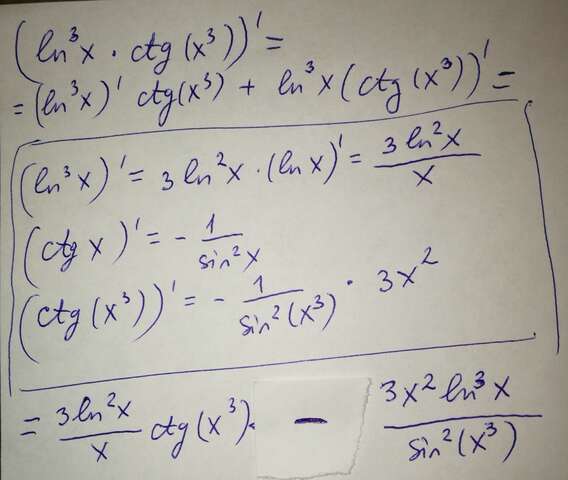 (ln³x · ctg(x³))' =
= (ln³x)' ctg(x³) + ln³x (ctg(x³))' =
(ln³x)' = 3ln²x · (ln x)' = 3ln²x / x
(ctg x)' = - 1 / sin²x
(ctg(x³))' = - 1 / sin²(x³) · 3x²
= 3ln²x / x ctg(x³) · - 3x² ln³x / sin²(x³)